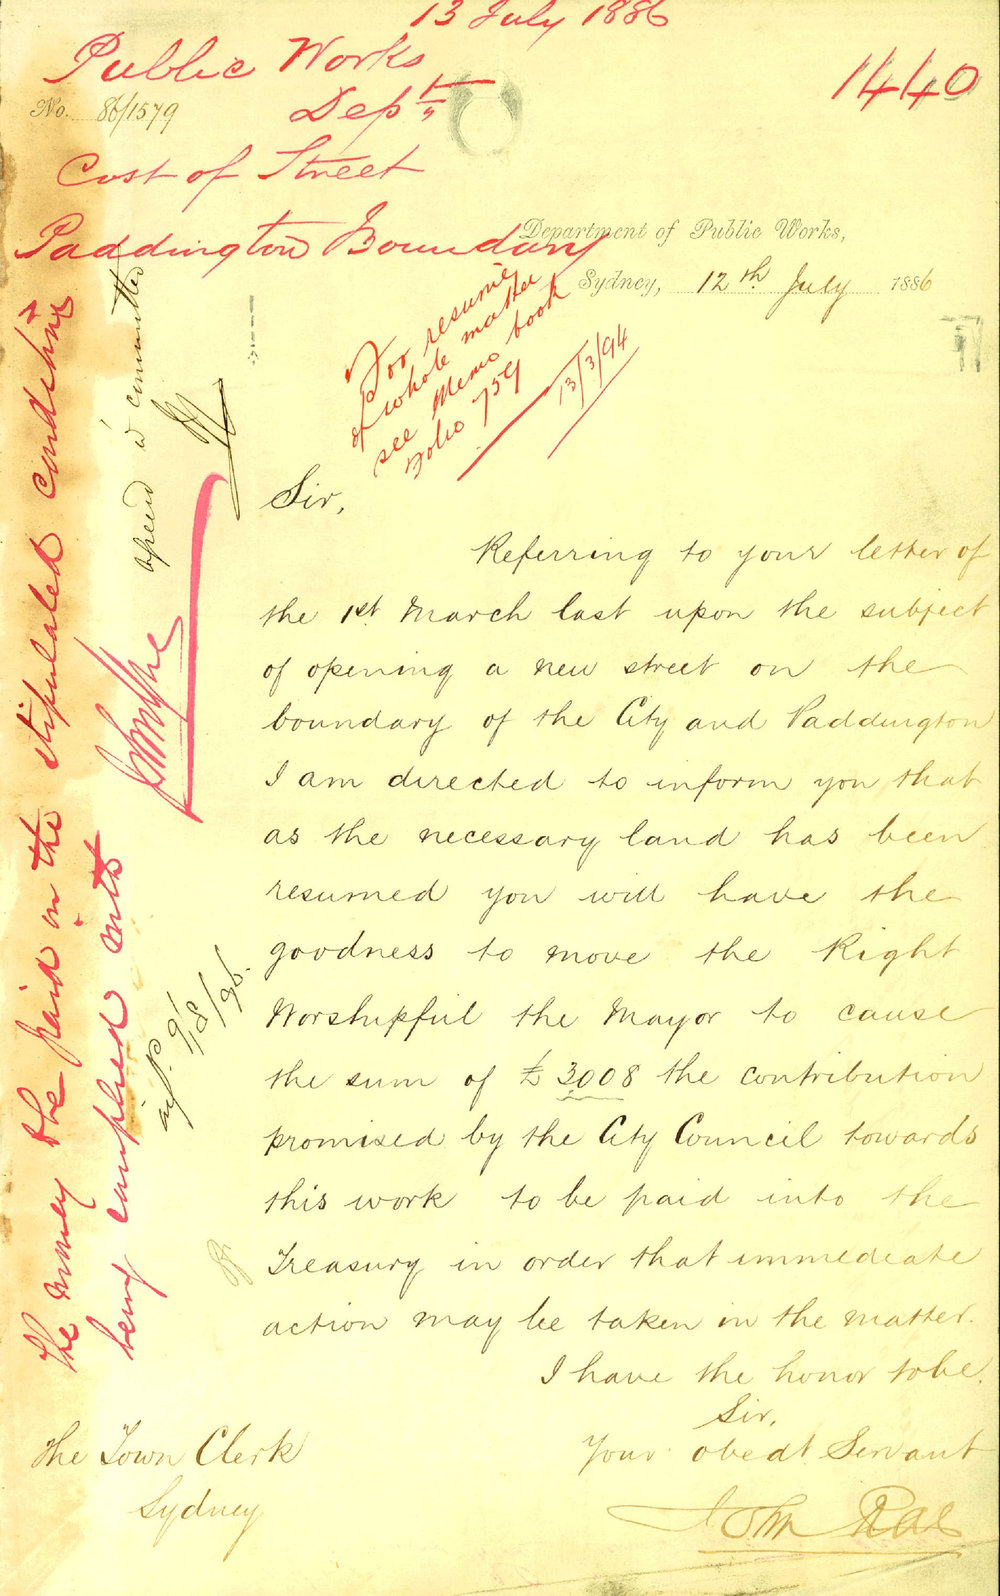 13 July 1886
Public Works
Dep.t
1440
No. 86/1579
Cost of Street
Paddington Boundary
Department of Public Works,
Sydney, 12th July 1886
For resumé
of whole matter
see Memo book
Folio 759
13/3/94
Sir,
Referring to your letter of
the 1st March last upon the subject
of opening a new street on the
boundary of the City and Paddington
I am directed to inform you that
as the necessary land has been
resumed you will have the
goodness to move the Right
Worshipful the Mayor to cause
the sum of £3008 the contribution
promised by the City Council towards
this work to be paid into the
Treasury in order that immediate
action may be taken in the matter.
I have the honor to be.
Sir,
Your obedt Servant
John Rae
The Town Clerk
Sydney
The money to be paid on the stipulated condition
being complied with